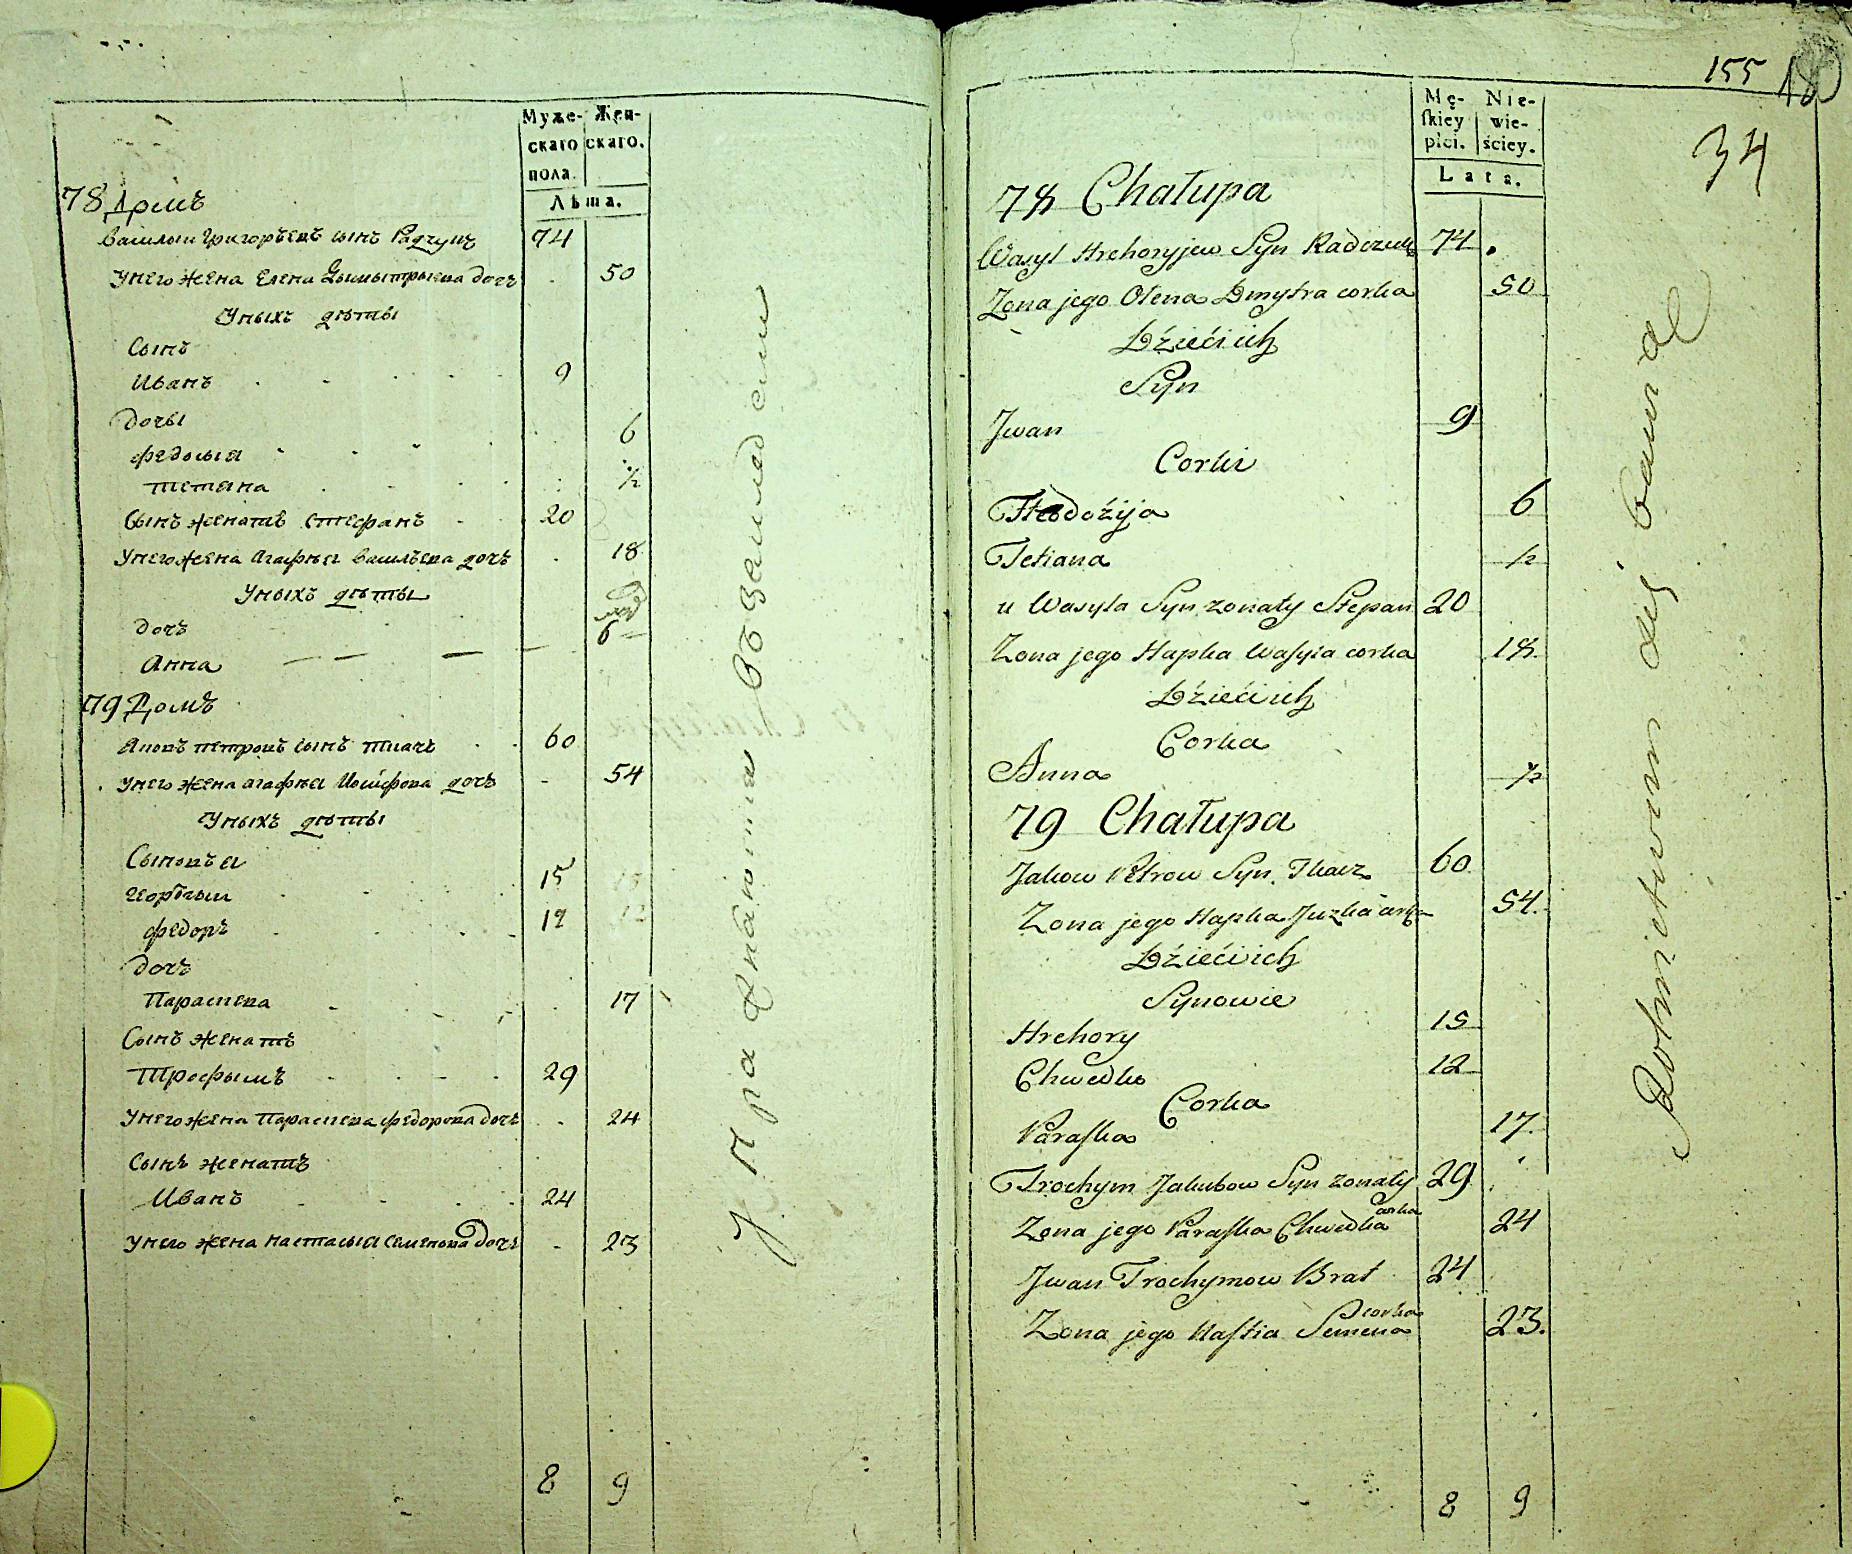 Муже-
скаго
пола.
Жен-
скаго.
Лѣта.
78 Домъ
Василий Григорьевъ сынъ Радчукъ 74
У него жена Елена Дымытрыева дочь 50
У ныхъ дѣты
Сынъ
Иванъ 9
Дочьı
Федосыя 6
Тетяна ½
Сынъ женатъ Стефанъ 20
У него жена Агафыя Васильева дочь 18
У ныхъ дѣты
дочь
Анна
79 Домъ
Яковъ Петровъ сынъ Ткачъ 60
У него жена Агафыя Иосифова дочь 54
У ныхъ дѣты
Сыновъя
Георгий 15
Федоръ 12
Дочь
Параскева 17
Сынъ женатъ
Трофымъ 29
У него жена Параскева Федорова дочь 24
Сынъ женатъ
Иванъ 24
У него жена Настасыя Семенова дочь 23
8 9
155
34
Mę-
ſkiey
płci.
Nie-
wie-
ściey.
Lata.
78 Chałupa
Wasyl Hrehoryjew Syn Radczuk 74
Zona jego Olena Dmytra corka 50
Dźieći ich
Syn
Jwan 9
Corki
Fteodoźija 6
Tetiana ½
u Wasyla Syn zonaty Stepan 20
Zona jego Hapka Waſyla corka 18
Dźieći ich
Corka
Anna ½
79 Chałupa
Jakow Petrow Syn Tkacz 60
Zona jego Hapka Juzka corka 54.
Dźieći ich
Synowie
Hrehory 15
Chwedko 12
Corka
Paraſka 17.
Trochym Jakubow Syn zonaty 29
Zona jego Paraſka Chwedka corka 24
Jwan Trochymow Brat 24
Zona jego Naſtia Semena corka 23.
8 9